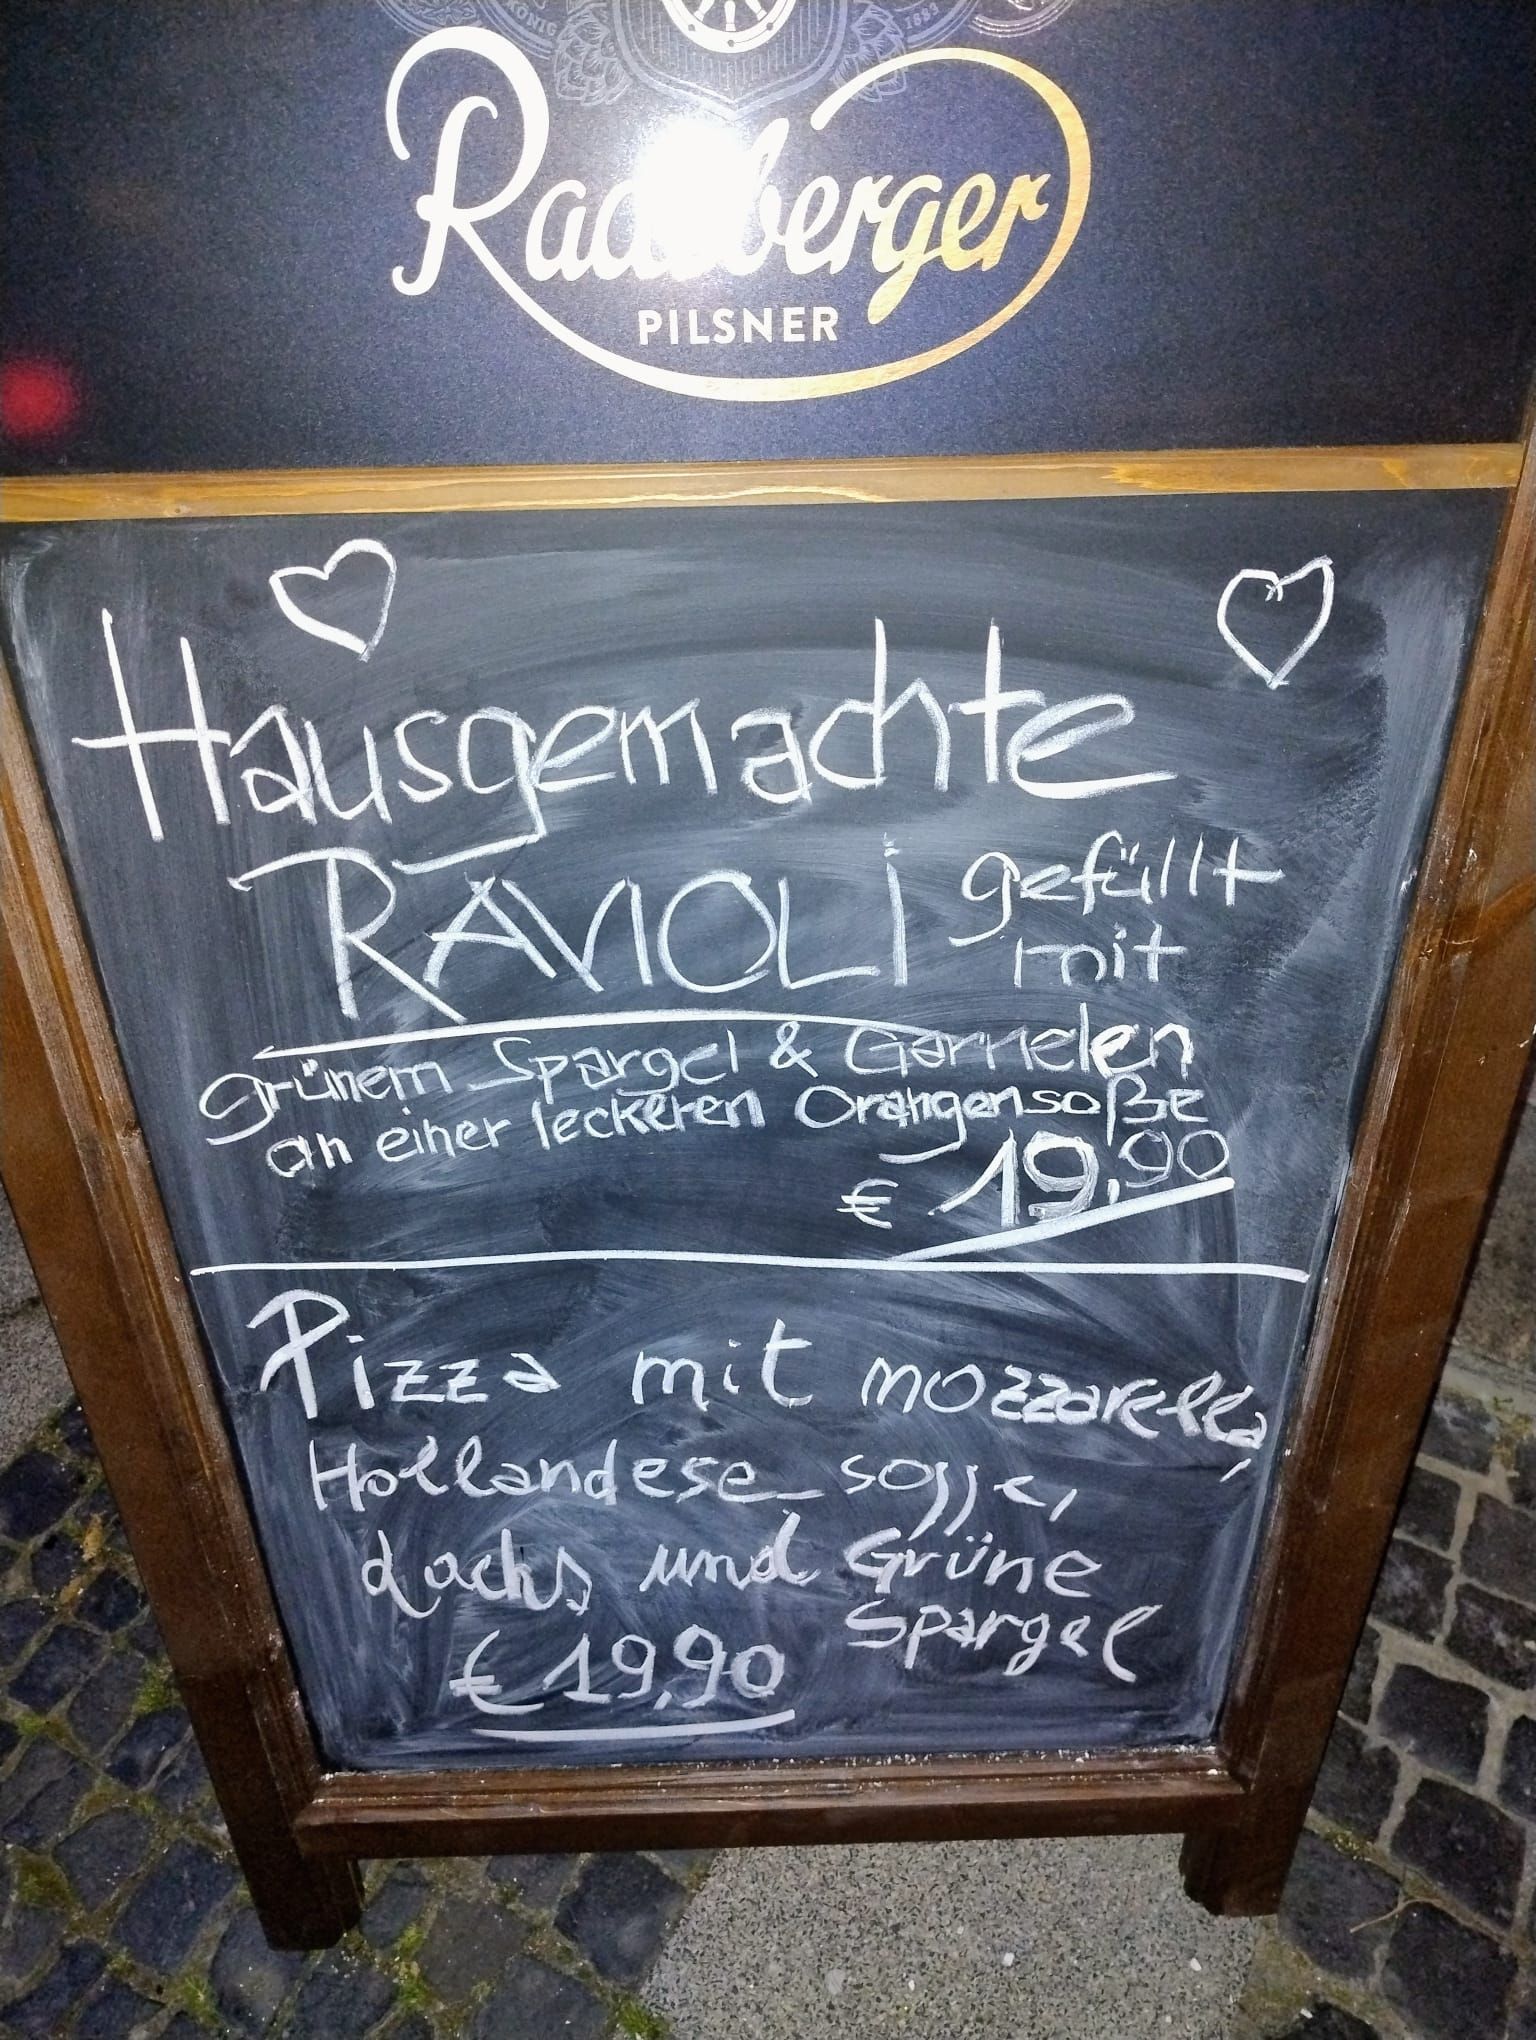 KÖNIG
1883
Radeberger
PILSNER
Hausgemachte
RAVIOLi gefüllt
mit
grünem Spargel & Garnelen
an einer leckeren Orangensoße
€ 19,90
Pizza mit mozzarella,
Hollandese sosse,
Lachs und Grüne
Spargel
€ 19,90